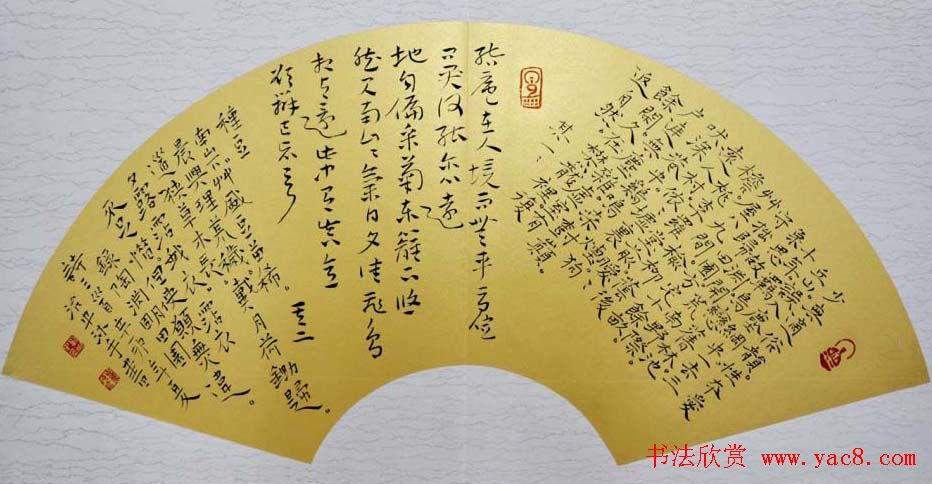 少無適俗韻。性本愛
丘山。誤落塵網中。一去三
十年。羈鳥戀舊林。池
魚思故淵。開荒南野際。
守拙歸園田。方宅十餘畝。
草屋八九間。榆柳蔭後
檐。桃李羅堂前。曖曖
遠人村。依依墟里煙。狗
吠深巷中。雞鳴桑樹巔。
户庭無塵雜。虛室有
餘閑。久在樊籠裡。復
返自然。
其一
結廬在人境而無車馬喧
問君何能尔心遠
地自偏采菊東籬下悠
然見南山山氣日夕佳飛鳥
相與還此中有真意
欲辨已忘言 其二
種豆
南山下艸盛豆苗稀。
晨興理荒穢。戴月荷鋤歸。
道狹草木長
夕露沾我衣
衣沾不足惜。但使願無違。
錄陶淵明田園
詩三首
书法欣赏 www.yac8.com